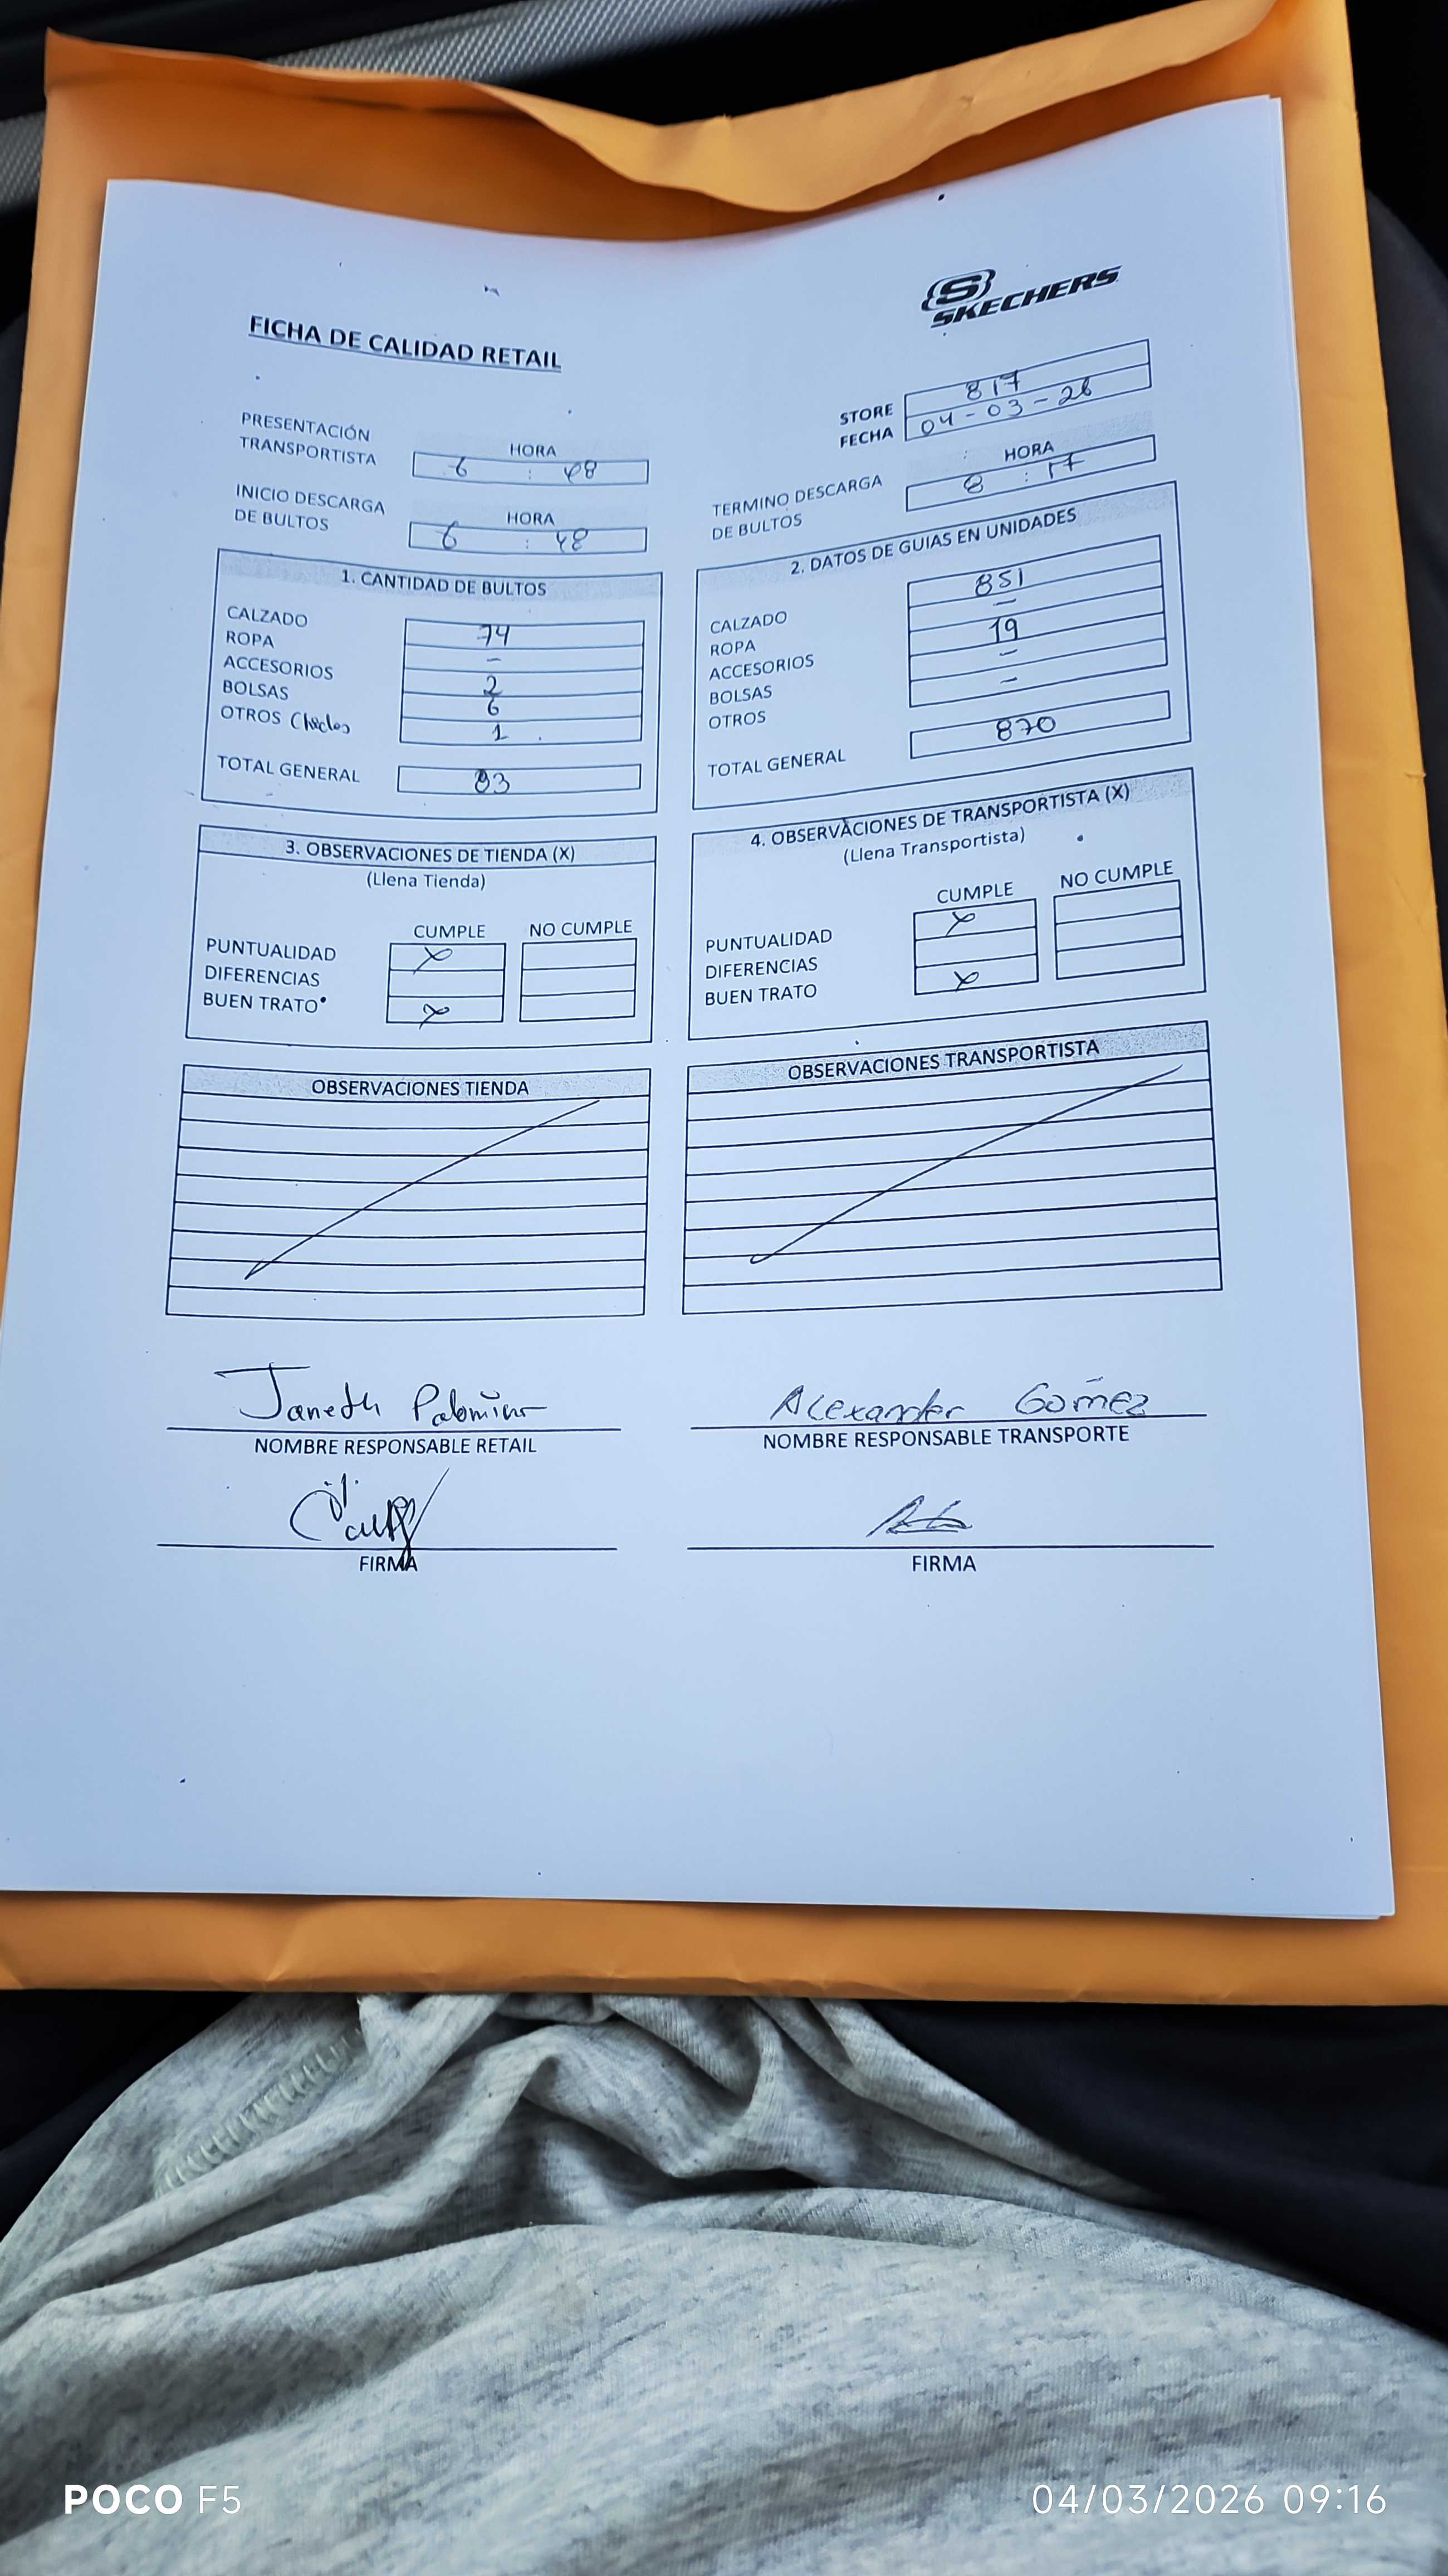 SKECHERS
FICHA DE CALIDAD RETAIL
STORE 817
FECHA 04-03-26
PRESENTACIÓN
TRANSPORTISTA
HORA
6 : 48
INICIO DESCARGA
DE BULTOS
HORA
6 : 48
TERMINO DESCARGA
DE BULTOS
HORA
8 : 17
1. CANTIDAD DE BULTOS
CALZADO 74
ROPA -
ACCESORIOS 2
BOLSAS 6
OTROS 1
TOTAL GENERAL 83
2. DATOS DE GUIAS EN UNIDADES
CALZADO 851
ROPA -
ACCESORIOS 19
BOLSAS -
OTROS -
TOTAL GENERAL 870
3. OBSERVACIONES DE TIENDA (X)
(Llena Tienda)
CUMPLE NO CUMPLE
PUNTUALIDAD X
DIFERENCIAS
BUEN TRATO X
4. OBSERVACIONES DE TRANSPORTISTA (X)
(Llena Transportista)
CUMPLE NO CUMPLE
PUNTUALIDAD X
DIFERENCIAS
BUEN TRATO X
OBSERVACIONES TIENDA
OBSERVACIONES TRANSPORTISTA
Janeth Palomino
NOMBRE RESPONSABLE RETAIL
FIRMA
Alexander Gomez
NOMBRE RESPONSABLE TRANSPORTE
FIRMA
POCO F5
04/03/2026 09:16